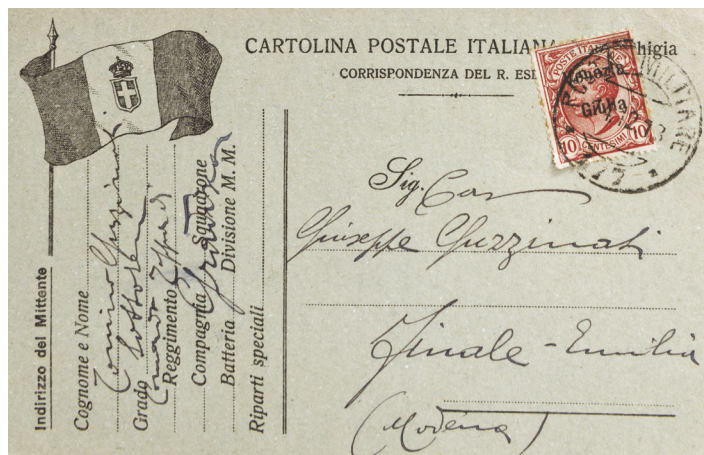 CARTOLINA POSTALE ITALIANA
CORRISPONDENZA DEL R. ESE
POSTE ITALIANE
Venezia
Giulia
10 CENTESIMI 10
POSTA MILITARE
Sig. Cav
Giuseppe Guzzinati
Finale-Emilia
(Modena)
Indirizzo del Mittente
Cognome e Nome
Tonino Guzzinati
Grado
Reggimento
Compagnia Squadrone
Batteria Divisione M. M.
Riparti speciali